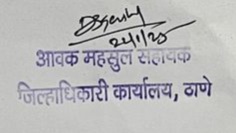 24/1/25
आवक महसुल सहायक
जिल्हाधिकारी कार्यालय, ठाणे